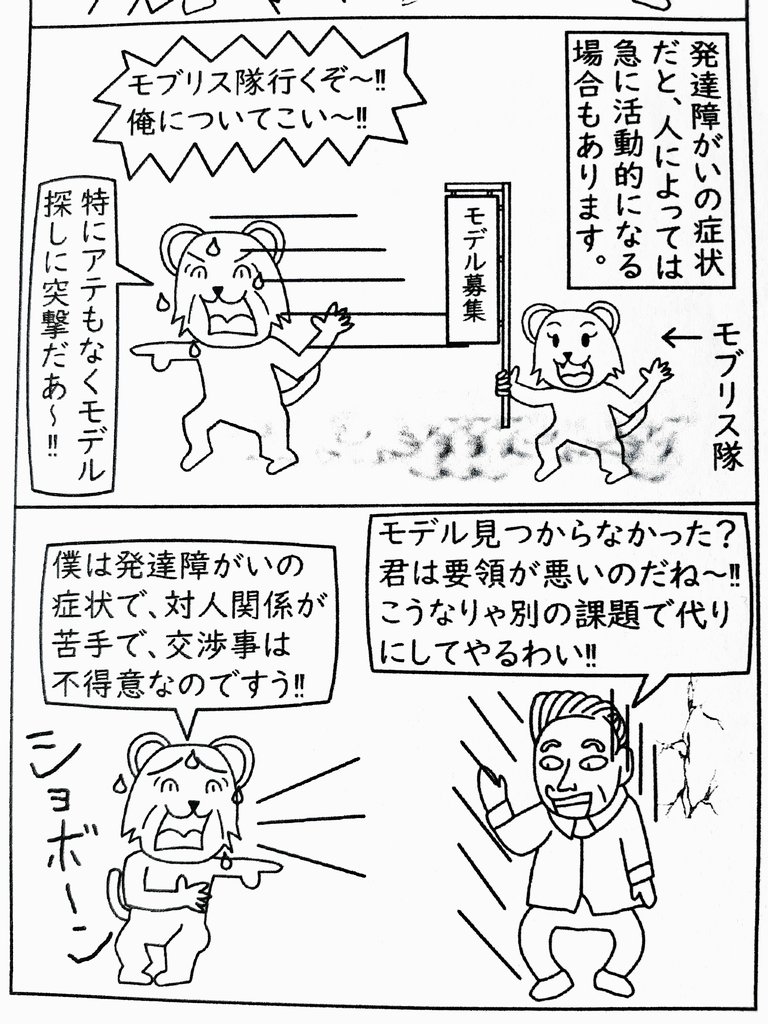 発達障がいの症状
だと、人によっては
急に活動的になる
場合もあります。
モブリス隊行くぞ〜!!
俺についてこい〜!!
モブリス隊
モデル募集
特にアテもなくモデル
探しに突撃だあ〜!!
モデル見つからなかった？
君は要領が悪いのだね〜!!
こうなりゃ別の課題で代り
にしてやるわい!!
僕は発達障がいの
症状で、対人関係が
苦手で、交渉事は
不得意なのですう!!
ショボーン